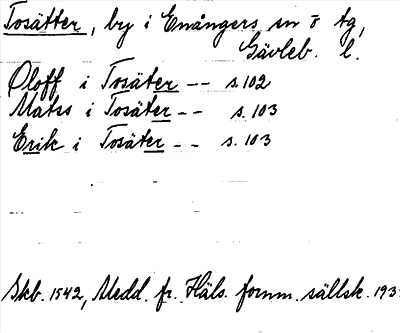 Tosätter, by i Enångers sn o tg,
Gävleb. l.
Oloff i Tosäter -- s. 102
Mats i Tosäter -- s. 103
Erik i Tosäter -- s. 103
Skb. 1542, Medd. fr. Häls. fornm. sällsk. 193